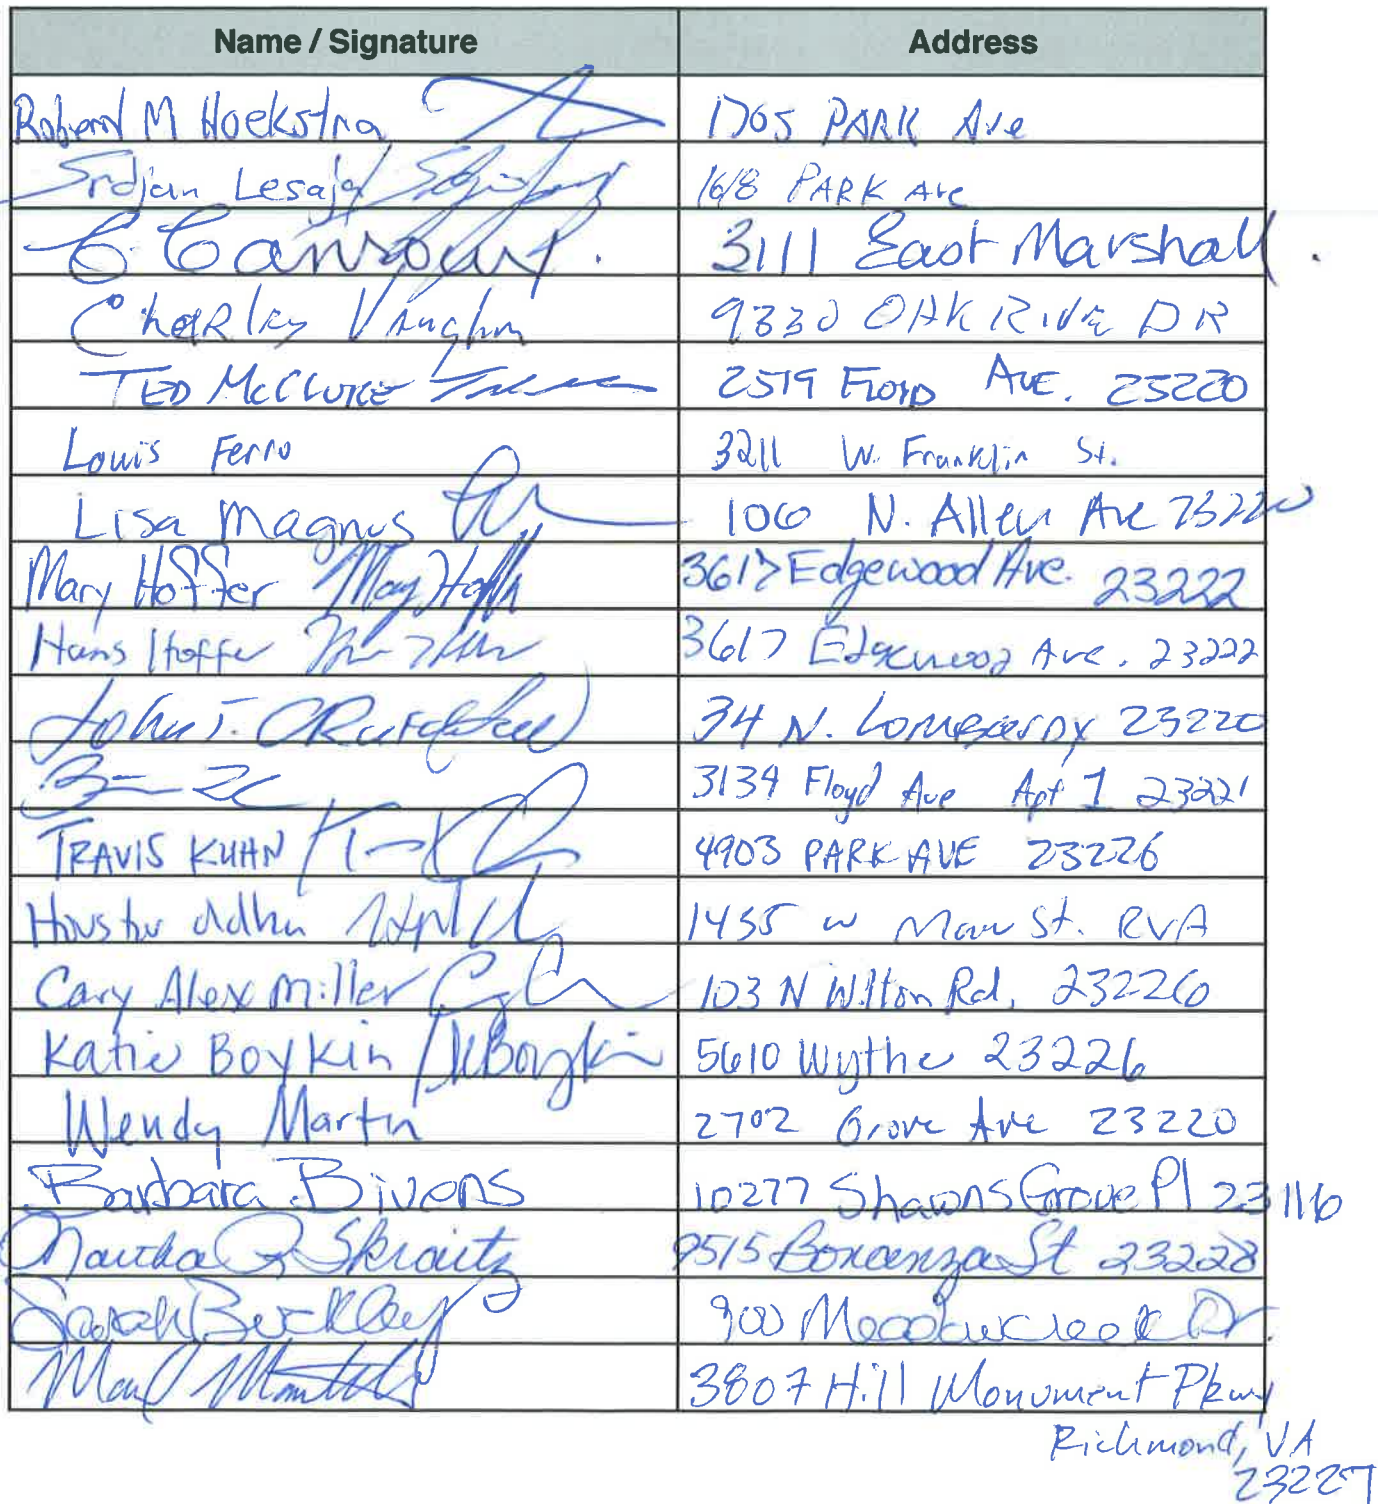 Name / Signature Address
Robert M Hoekstra 1705 PARK Ave
Srdjan Lesaja 1618 PARK Ave
3111 East Marshall.
Charley Vaughn 9330 OAK RIVER DR
TED McCLURE 2519 FLOYD AVE. 23220
Louis Ferro 3211 W. Franklin St.
Lisa Magnus 106 N. Allen Ave 23220
Mary Hoffer Mary Hoffer 3617 Edgewood Ave. 23222
Hans Hoffer 3617 Edgewood Ave. 23222
John T. 34 N. Lombardy 23220
3134 Floyd Ave Apt 1 23221
TRAVIS KUHN 4903 PARK AVE 23226
1435 W Main St. RVA
Cary Alex Miller 103 N Wilton Rd, 23226
Katie Boykin / KBoykin 5610 Wythe 23226
Wendy Martin 2702 Grove Ave 23220
Barbara Bivens 10277 Shawns Grove Pl 23116
Martha Skraitz 9515 Bonanza St 23228
Sarah Buckley 900 Meadowcreek Dr.
3807 Hill Monument Pkwy
Richmond, VA
23227